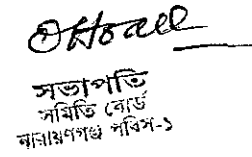 সভাপতি
সমিতি বোর্ড
নারায়ণগঞ্জ পবিস-১